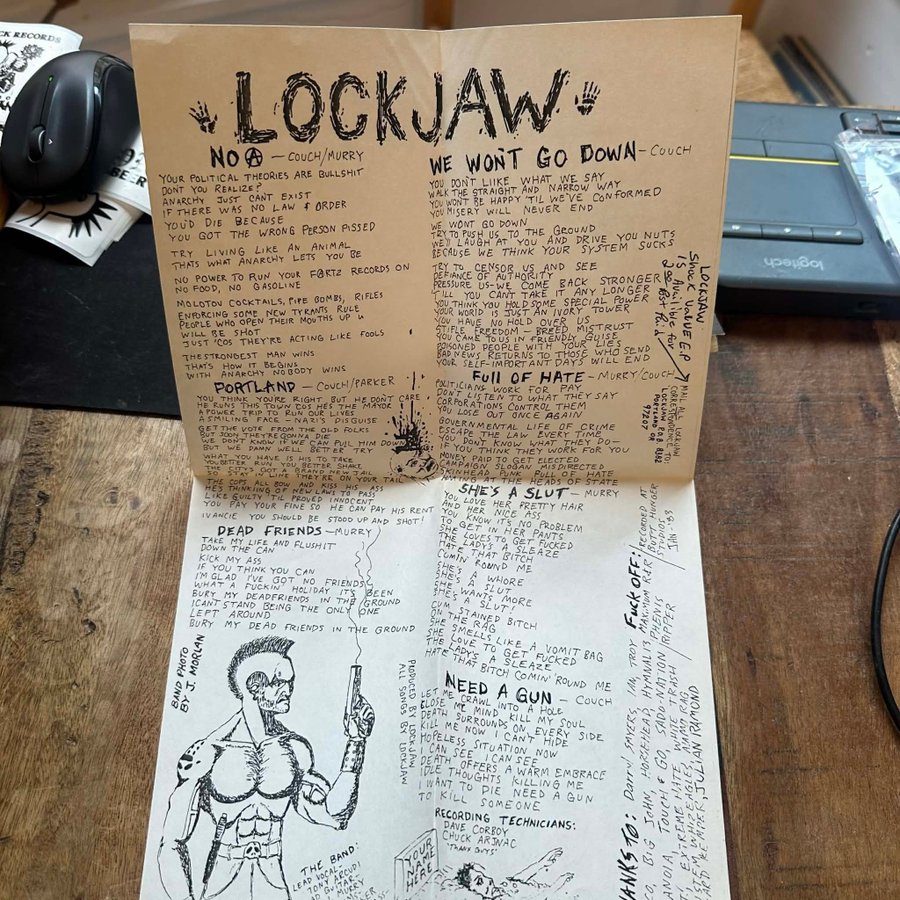 CK RECORDS
LOCKJAW
NO Ⓐ — COUCH/MURRY
YOUR POLITICAL THEORIES ARE BULLSHIT
DONT YOU REALIZE?
ANARCHY JUST CAN'T EXIST
IF THERE WAS NO LAW & ORDER
YOU'D DIE BECAUSE
YOU GOT THE WRONG PERSON PISSED
TRY LIVING LIKE AN ANIMAL
THATS WHAT ANARCHY LETS YOU BE
NO POWER TO RUN YOUR FARTZ RECORDS ON
NO FOOD, NO GASOLINE
MOLOTOV COCKTAILS, PIPE BOMBS, RIFLES
ENFORCING SOME NEW TYRANTS RULE
PEOPLE WHO OPEN THEIR MOUTHS UP
WILL BE SHOT
JUST 'COS THEY'RE ACTING LIKE FOOLS
THE STRONGEST MAN WINS
THAT'S HOW IT BEGINS
WITH ANARCHY NOBODY WINS
PORTLAND — COUCH/PARKER
YOU THINK YOU'RE RIGHT BUT HE DON'T CARE
HE RUNS THIS TOWN COS HES THE MAYOR
A POWER TRIP TO RUN OUR LIVES
A SMILING FACE - A NAZI'S DISGUISE
GET THE VOTE FROM THE OLD FOLKS
BUT SOON THEY'RE GONNA DIE
WE DON'T KNOW IF WE CAN PULL HIM DOWN
BUT WE DAMN WELL BETTER TRY
WHAT YOU HAVE IS HIS TO TAKE
YOU BETTER RUN YOU BETTER SHAKE
THE CITY'S GOT A BRAND NEW JAIL
THEY'RE ON YOUR TAIL
THE COPS ALL BOW AND KISS HIS ASS
HE'S THINKING OF NEW LAWS TO PASS
LIKE GUILTY TIL PROVED INNOCENT
YOU PAY YOUR FINE SO HE CAN PAY HIS RENT
IVANCIE YOU SHOULD BE STOOD UP AND SHOT!
DEAD FRIENDS — MURRY
TAKE MY LIFE AND FLUSH IT
DOWN THE CAN
KICK MY ASS
IF YOU THINK YOU CAN
I'M GLAD I'VE GOT NO FRIENDS
WHAT A FUCKIN' HOLIDAY IT'S BEEN
BURY MY DEADFRIENDS IN THE GROUND
I CANT STAND BEING THE ONLY ONE
LEFT AROUND
BURY MY DEAD FRIENDS IN THE GROUND
BAND PHOTO
BY J. MORLAN
PRODUCED BY LOCKJAW
ALL SONGS BY LOCKJAW
THE BAND:
LEAD VOCAL-
TONY ARCUDI
WE WON'T GO DOWN — COUCH
YOU DON'T LIIKE WHAT WE SAY
WALK THE STRAIGHT AND NARROW WAY
YOU WON'T BE HAPPY 'TIL WE'VE CONFORMED
YOU MISERY WILL NEVER END
WE WONT GO DOWN
TRY TO PUSH US TO THE GROUND
WE'LL LAUGH AT YOU AND DRIVE YOU NUTS
BECAUSE WE THINK YOUR SYSTEM SUCKS
TRY TO CENSOR US AND SEE
DEFIANCE OF AUTHORITY
PRESSURE US - WE COME BACK STRONGER
TILL YOU CAN'T TAKE IT ANY LONGER
YOU THINK YOU HOLD SOME SPECIAL POWER
YOUR WORLD IS JUST AN IVORY TOWER
YOU HAVE NO HOLD OVER US
STIFLE FREEDOM — BREED MISTRUST
YOU CAME TO US IN FRIENDLY GUISE
POISONED PEOPLE WITH YOUR LIES
BAD NEWS RETURNS TO THOSE WHO SEND
YOUR SELF-IMPORTANT DAYS WILL END
LOCKJAW
SHOCK VALUE E.P
IS AVAILIBLE FOR
MAIL ALL LOCKJAW
CORRESPONDENCE TO:
LOCKJAW
PORTLAND OR
97207
FULL OF HATE — MURRY/COUCH
POLITICIANS WORK FOR PAY
DON'T LISTEN TO WHAT THEY SAY
CORPORATIONS CONTROL THEM
YOU LOSE OUT ONCE AGAIN
GOVERNMENTAL LIFE OF CRIME
ESCAPE THE LAW EVERY TIME
YOU DON'T KNOW WHAT THEY DO—
IF YOU THINK THEY WORK FOR YOU
MONEY PAID TO GET ELECTED
CAMPAIGN SLOGAN MISDIRECTED
SKINHEAD PUNK FULL OF HATE
AT THE HEADS OF STATE
SHE'S A SLUT — MURRY
YOU LOVE HER PRETTY HAIR
AND HER NICE ASS
YOU KNOW IT'S NO PROBLEM
TO GET IN HER PANTS
SHE LOVES TO GET FUCKED
THE LADY'S A SLEAZE
HATE THAT BITCH
COMIN' ROUND ME
SHE'S A WHORE
SHE'S A SLUT
SHE WANTS MORE
SHE'S A SLUT!
CUM STAINED BITCH
ON THE RAG
SHE SMELLS LIKE A VOMIT BAG
SHE LOVE TO GET FUCKED
THE LADY'S A SLEAZE
HATE THAT BITCH COMIN' ROUND ME
NEED A GUN — COUCH
LET ME CRAWL INTO A HOLE
CLOSE ME MIND KILL MY SOUL
DEATH SURROUNDS ON EVERY SIDE
KILL ME NOW I CAN'T HIDE
HOPELESS SITUATION NOW
I CAN SEE I CAN SEE
DEATH OFFERS A WARM EMBRACE
IDLE THOUGHTS KILLING ME
I WANT TO DIE NEED A GUN
TO KILL SOMEONE
RECORDING TECHNICIANS:
DAVE CORBOY
CHUCK ARJNAC
"THANX GUYS"
YOUR
NAME
HERE
RECORDED AT
BUTT HUNGER
STUDIOS
JAN '83
FUCK OFF:
MAXIMUM R&R
PHENIS
RIPPER
ANKS TO: DARRYL SAYERS, IAN, TROY
CO, BIG JOHN, HORSEHEAD, HYMNALIS,
ANOIA, TOUCH & GO, SADO-NATION
EXTREME HATE, WHITE TRASH
JULLIAN RAMOND
logitech